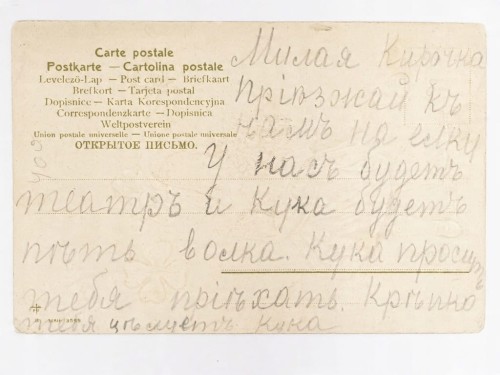 Carte postale
Postkarte — Cartolina postale
Levelező-Lap — Post card — Briefkaart
Brefkort — Tarjeta postal
Dopisnice — Karta Korespondencyjna
Correspondenzkarte — Dopisnica
Weltpostverein
Union postale universelle — Unione postale universale
ОТКРЫТОЕ ПИСЬМО.
Милая Курочка
Пріѣзжай къ
намъ на елку
У насъ будетъ
театръ и Кука будетъ
пѣть волка. Кука проситъ
тебя пріѣхать. Крѣпко
тебя цѣлуетъ Кука